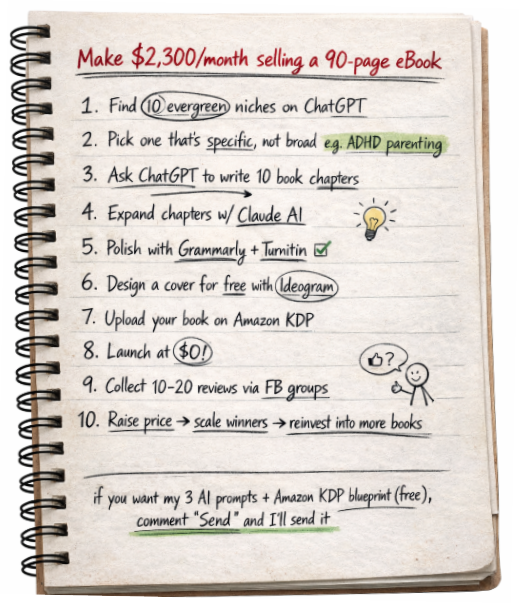 Make $2,300/month selling a 90-page eBook
1. Find 10 evergreen niches on ChatGPT
2. Pick one that's specific, not broad e.g. ADHD parenting
3. Ask ChatGPT to write 10 book chapters
4. Expand chapters w/ Claude AI
5. Polish with Grammarly + Turnitin
6. Design a cover for free with Ideogram
7. Upload your book on Amazon KDP
8. Launch at $0!
?
9. Collect 10-20 reviews via FB groups
10. Raise price → scale winners → reinvest into more books
if you want my 3 AI prompts + Amazon KDP blueprint (free),
comment "Send" and I'll send it